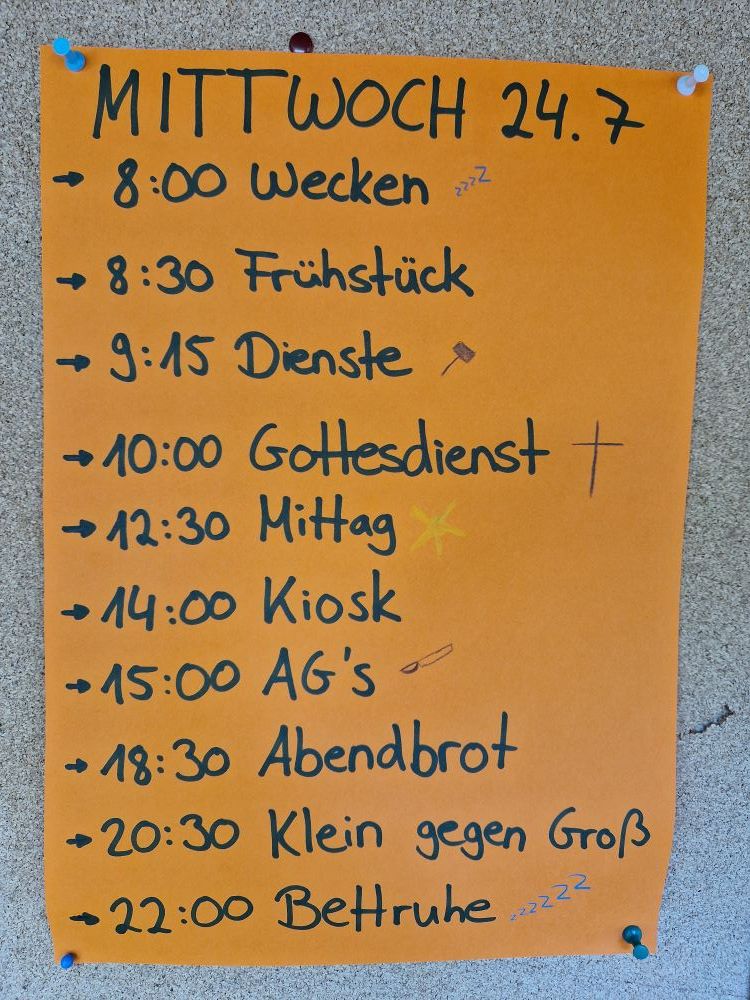 MITTWOCH 24.7
→ 8:00 Wecken zzzz
→ 8:30 Frühstück
→ 9:15 Dienste
→ 10:00 Gottesdienst
→ 12:30 Mittag
→ 14:00 Kiosk
→ 15:00 AG's
→ 18:30 Abendbrot
→ 20:30 Klein gegen Groß
→ 22:00 Bettruhe zzzzzz